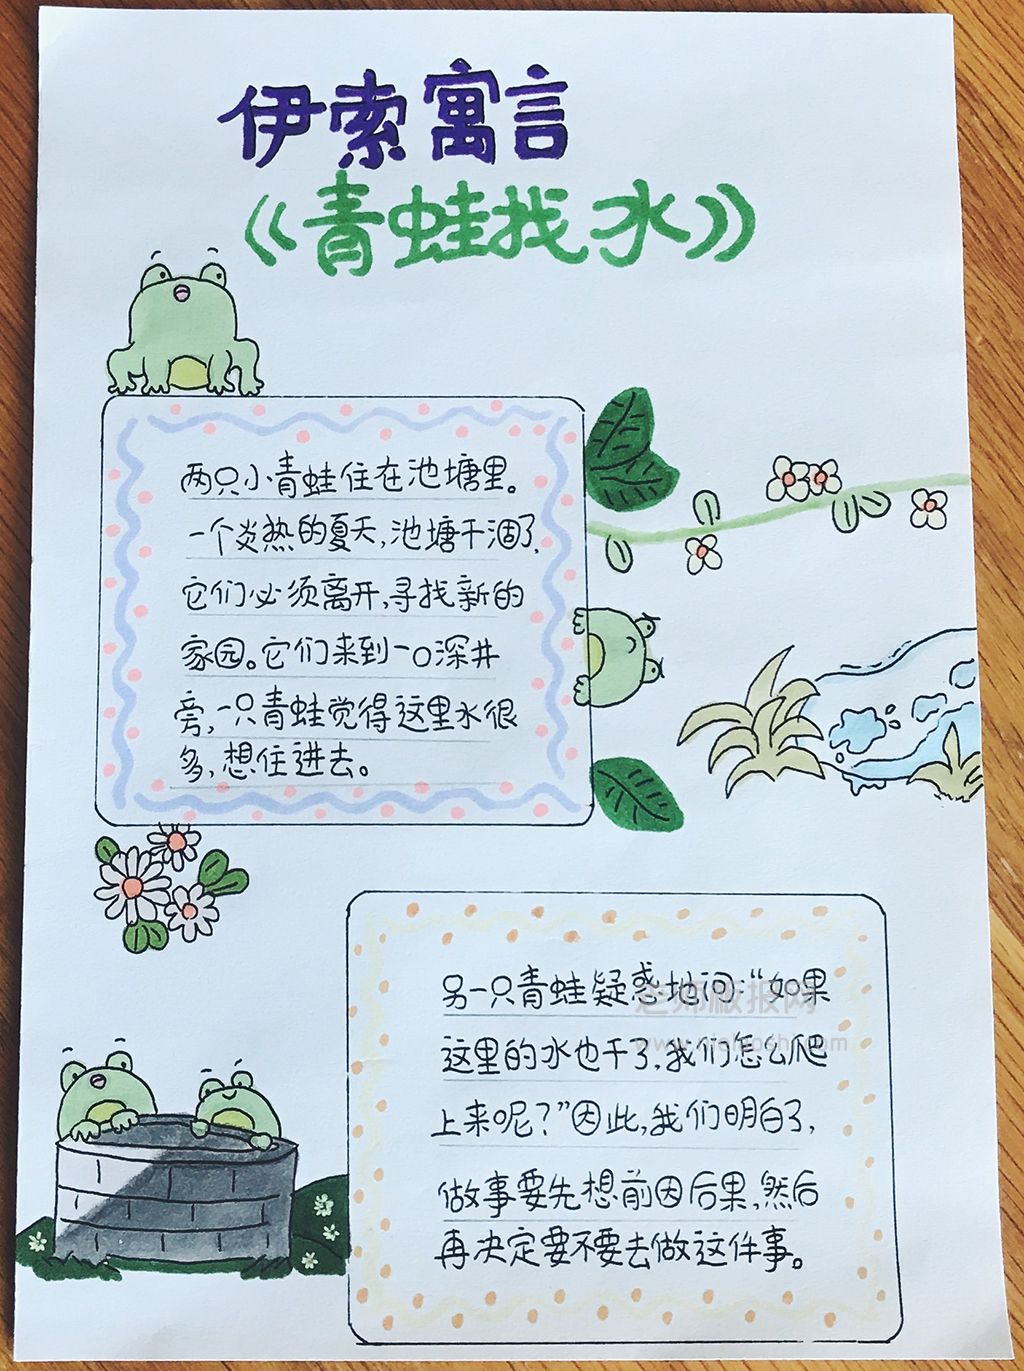 伊索寓言
《青蛙找水》
两只小青蛙住在池塘里。
一个炎热的夏天,池塘干涸了,
它们必须离开,寻找新的
家园。它们来到一口深井
旁,一只青蛙觉得这里水很
多,想住进去。
另一只青蛙疑惑地问:“如果
这里的水也干了,我们怎么爬
上来呢?”因此,我们明白了,
做事要先想前因后果,然后
再决定要不要去做这件事。
老师板报网